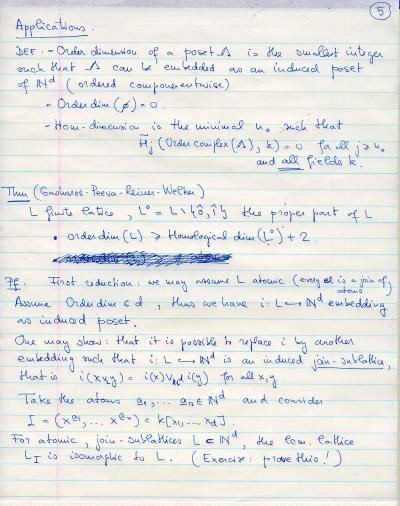 5
Applications.
DEF: - Order dimension of a poset Λ is the smallest integer
such that Λ can be embedded as an induced poset
of ℕᵈ (ordered componentwise)
- Order dim (∅) = 0.
- Hom-dimension is the minimal n₀ such that
H̃j (Order complex(Λ), k) = 0 for all j ≥ n₀
and all fields k.
Thm (Gasharov-Peeva-Reiner-Welker)
L finite lattice, L° = L \ {0̂, 1̂} the proper part of L
• order dim (L) ≥ Homological dim (L°) + 2.
Pf: First reduction: we may assume L atomic (every el is a join of
atoms)
Assume Order dim ≤ d, thus we have i: L ↪ ℕᵈ embedding
as induced poset.
One may show: that it is possible to replace i by another
embedding such that i: L ↪ ℕᵈ is an induced join-sublattice,
that is i(x ∨ y) = i(x) ∨_ℕᵈ i(y) for all x, y
Take the atoms a₁, ... aₙ ∈ ℕᵈ and consider
I = (x^a₁, ... x^aₙ) ⊂ k[x₁, ... x_d].
For atomic, join-sublattices L ⊂ ℕᵈ, the lcm. lattice
L_I is isomorphic to L. (Exercise: prove this!)